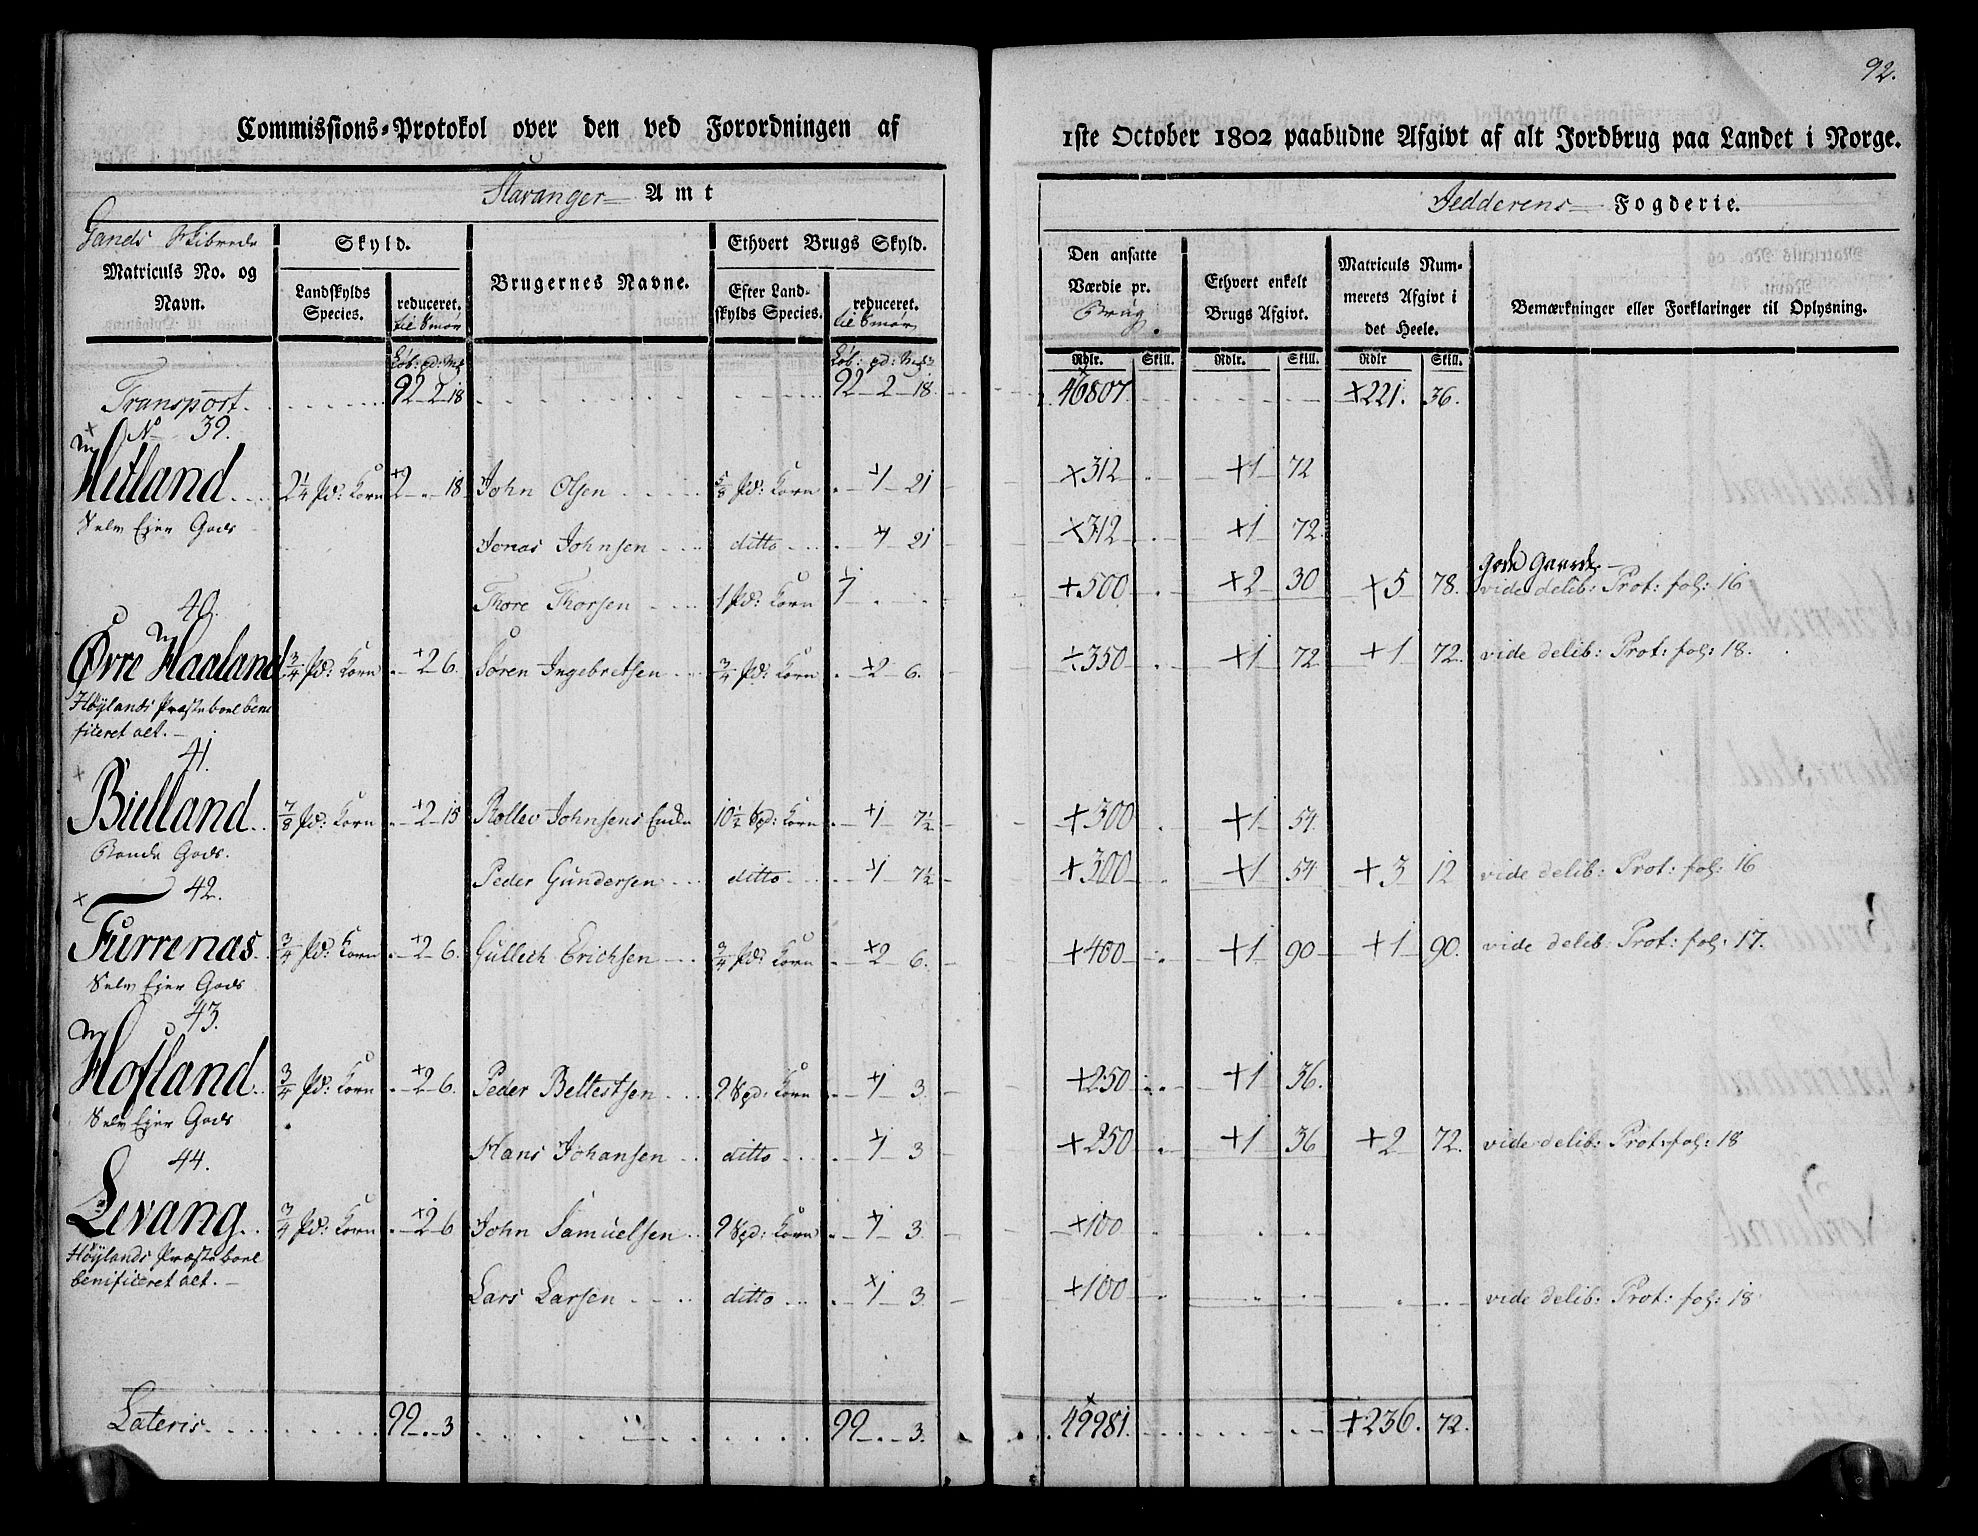 92.
Commissions-Protokol over den ved Forordningen af 1ste October 1802 paabudne Afgivt af alt Jordbrug paa Landet i Norge.
Stavanger Amt
Jedderens Fogderie.
Gands Skibrede
Matriculs No. og Navn.
Skyld.
Landskylds Species.
reduceret. til Smør
Brugernes Navne.
Ethvert Brugs Skyld.
Efter Landskylds Species.
reduceret. til Smør
Den ansatte Værdie pr. Brug.
Ethvert enkelt Brugs Afgivt.
Matriculs Nummerets Afgivt i det Heele.
Bemærkninger eller Forklaringer til Oplysning.
Rdlr. Skill. Rdlr. Skill. Rdlr Skill.
Transport 92 2 18 92 2 18 46807 221. 36.
No 39.
Hetland 2¼ Pd: Korn 2 . 18 John Olsen ⅝ Pd: Korn . 1 21 312 1 72
Selv Ejer Gods
Jonas Johnsen ditto . 1 21 312 1 72
Thore Thorsen 1 Pd: Korn 1 . . 500 2 30 5 78. vide delib: Prot: fol: 16
40.
Øvre Haaland ¾ Pd: Korn . 2 6. Søren Ingebretsen ¾ Pd: Korn . 2 6. 350 1 72 1 72. vide delib: Prot: fol: 18.
Høylands Præsteboel beneficeret alt.
41.
Bulland ⅞ Pd: Korn . 2 15 Rollev Johnsens Enke 10½ Spd: Korn . 1 7½ 300 1 54.
Bonde Gods.
Peder Gundersen ditto . 1 7½ 300 1 54 3 12 vide delib: Prot: fol: 16
42.
Furrenas ¾ Pd: Korn . 2 6. Gullech Erichsen ¾ Pd: Korn . 2 6. 400 1 90 1 90. vide delib: Prot: fol: 17.
Selv Ejer Gods
43.
Hofland ¾ Pd: Korn . 2 6. Peder Beltestsen 9 Spd: Korn . 1 3. 250 1 36.
Selv Ejer Gods
Hans Johansen ditto . 1 3 250 1 36 2 72. vide delib: Prot: fol: 18
44.
Levang ¾ Pd: Korn . 2 6 John Samuelsen 9 Spd: Korn . 1 3. 100 . .
Høylands Præsteboel
benificeret alt.
Lars Larsen ditto . 1 3. 100 . . . . vide delib: Prot: fol: 18
Lateris 99 . 3 99 . 3. 49981. 236. 72.